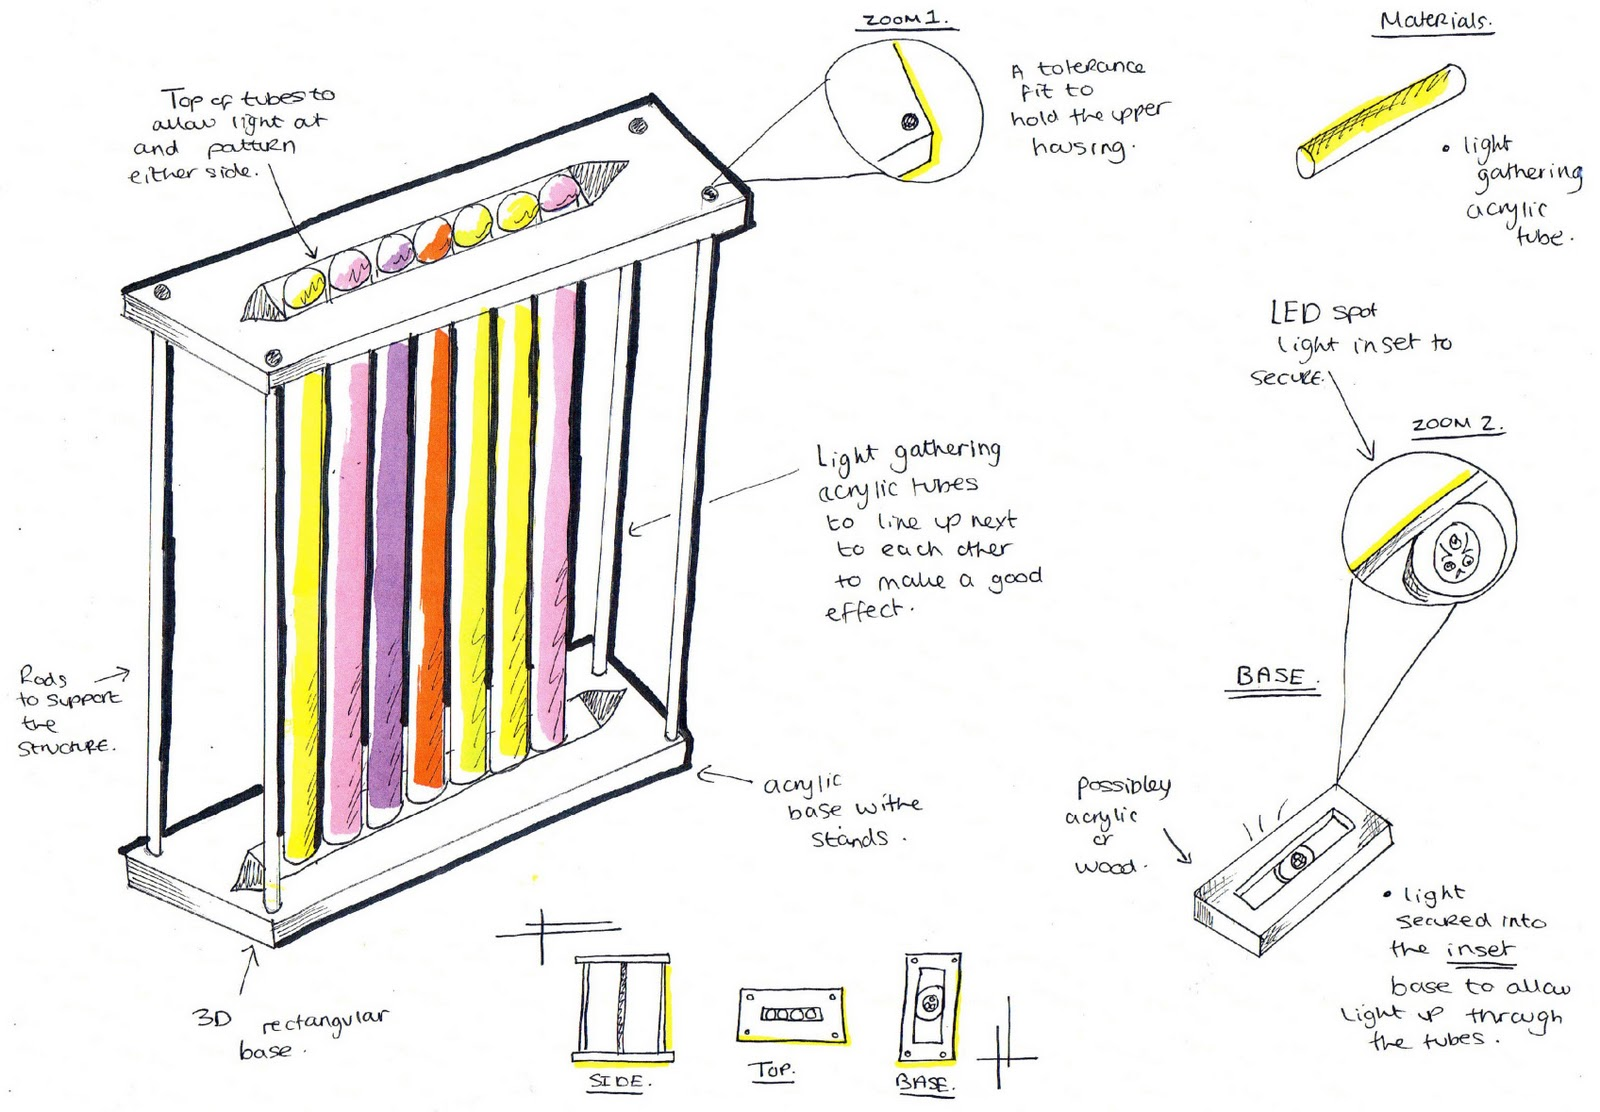 ZOOM 1.
Materials.
Top of tubes to
allow light at
and patturn
either side.
A tolerance
fit to
hold the upper
housing.
• light
gathering
acrylic
tube.
LED spot
light inset to
secure.
ZOOM 2.
Light gathering
acrylic tubes
to line up next
to each other
to make a good
effect.
Rods
to support
the
structure.
BASE.
acrylic
base withe
stands.
possibley
acrylic
or
wood.
• light
secured into
the inset
base to allow
light up through
the tubes.
3D rectangular
base.
SIDE.
TOP.
BASE.